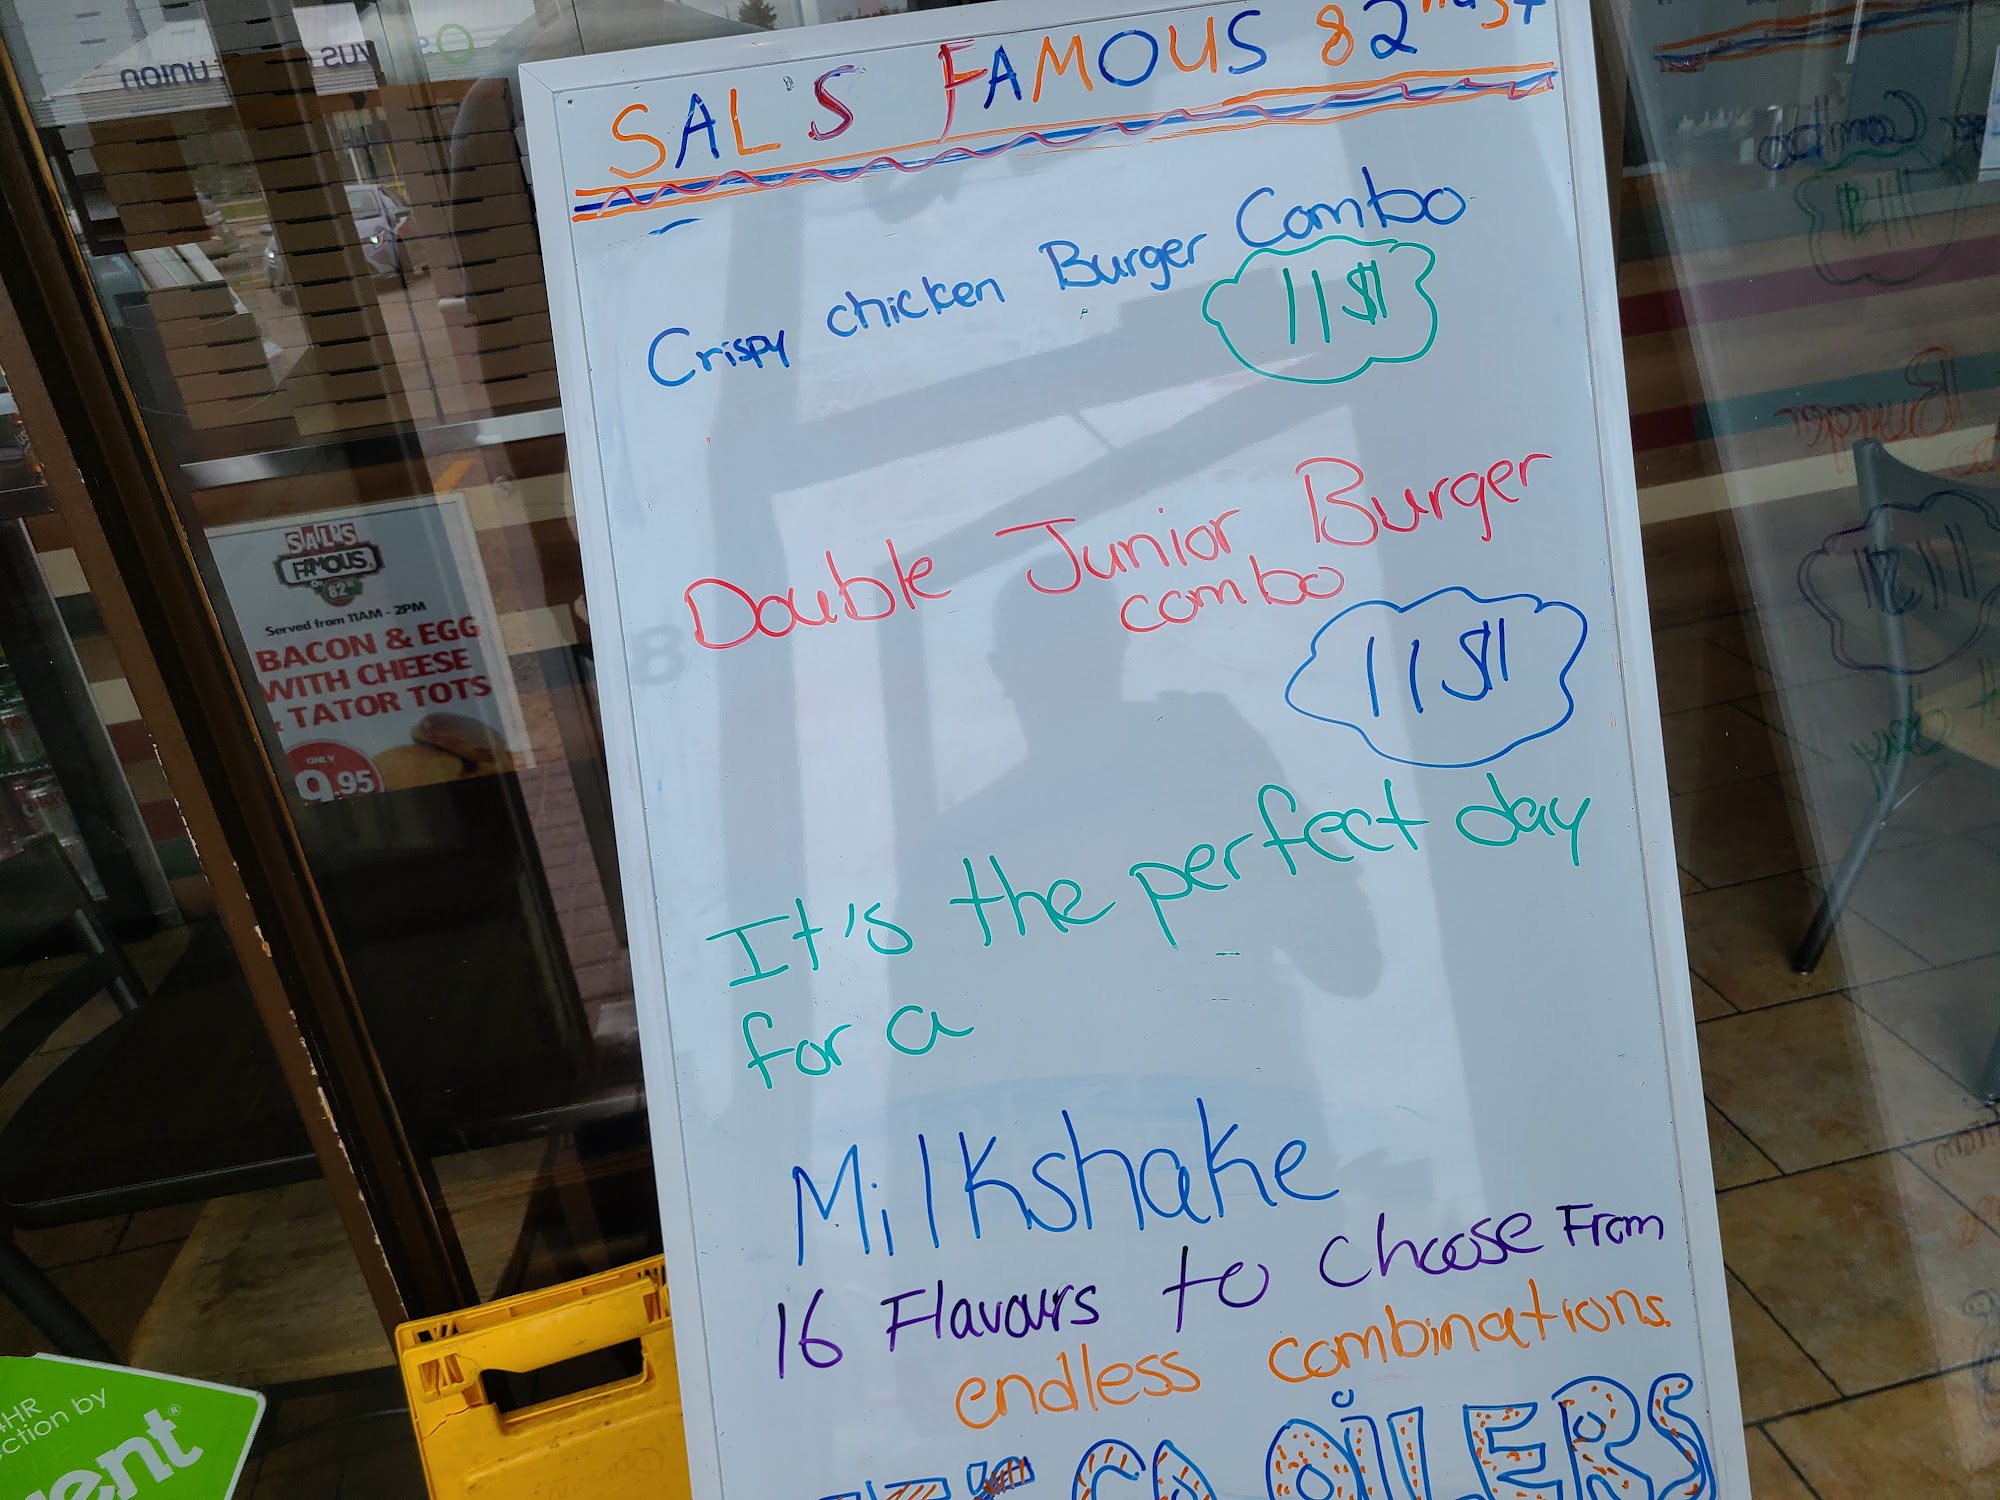 SAL'S FAMOUS 82nd St
Crispy chicken Burger Combo
11$
Double Junior Burger
combo
11$
It's the perfect day
for a
Milkshake
16 Flavours to choose From
endless combinations.
GO OILERS
SAL'S
FAMOUS
ON
82nd
Served from 11AM - 2PM
BACON & EGG
WITH CHEESE
& TATOR TOTS
ONLY
9.95
union
Burger Combo
11$
Burger
11$
HR
ction by
ent®